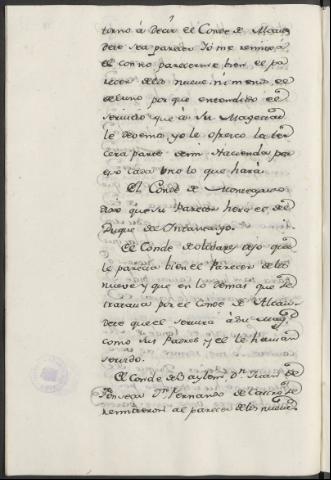 torno á decir el Conde de Alcau
dete sea parecer Yo me remito á
él con no parecerme bien el pa
recer delos nueve ni menos el
de uno por que entendido el
servicio que á Su Magestad
le devemos yo le ofrezco la ter
cera parte demi Hacienda por
eso cada uno lo que hará
El Conde de Monteagudo
dijo que su Parecer hera el del
Duque de Infantazgo.
El Conde de oldare dijo que
le parecia bien el Parecer de los
nueve y que en lo demas que se
tratava por el Conde de Alcau
dete que el servira á Su Magd.
como sus Padres y el le havian
servido.
El Conde de Baylen, Dn. Juan de
Fonseca Dn. Fernando de Castro se
remitieron al parecer de los nueve